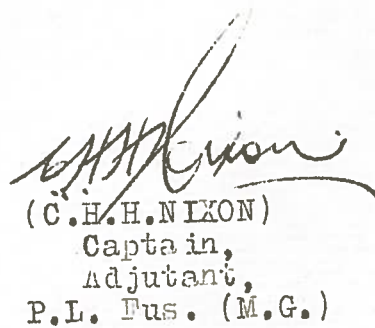 CHHNixon
(C.H.H.NIXON)
Captain,
Adjutant,
P.L. Fus. (M.G.)